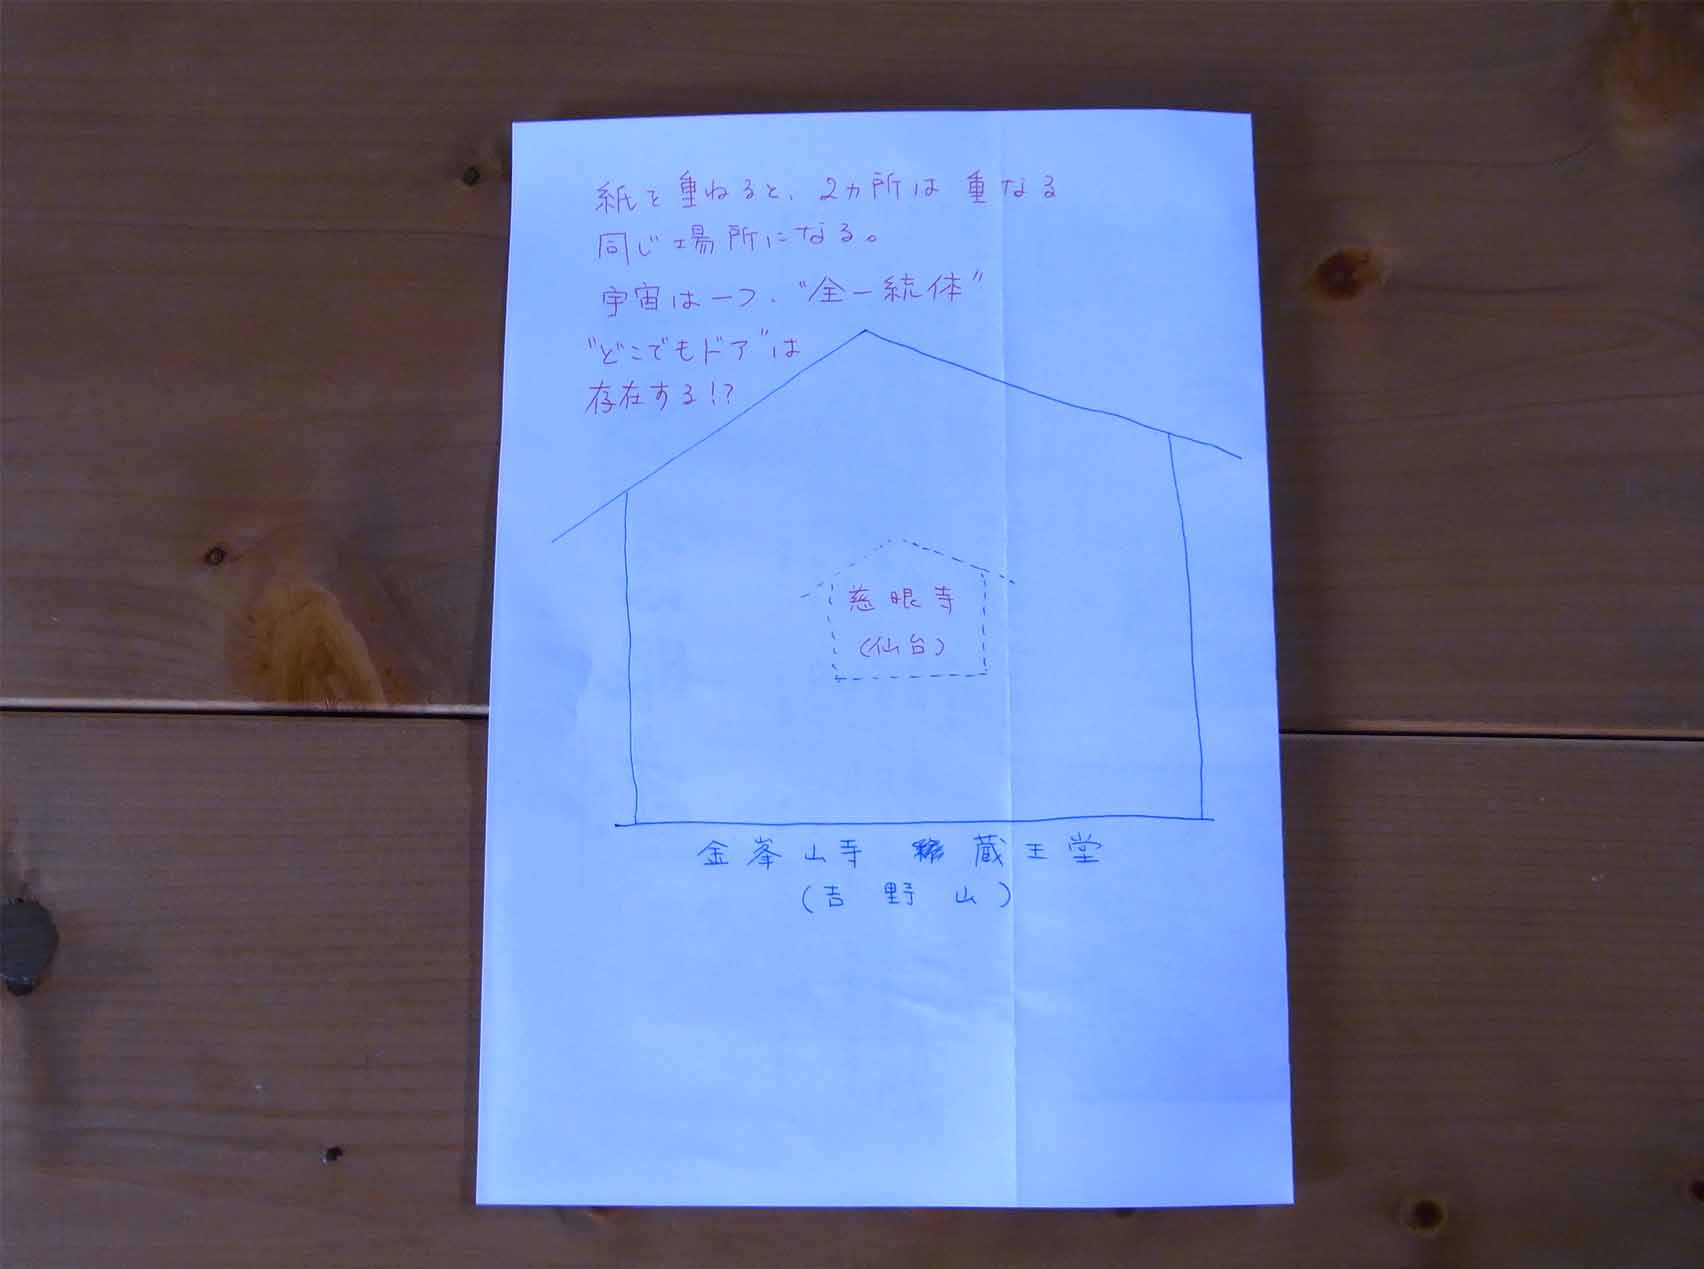 紙を重ねると、2ヵ所は重なる
同じ場所になる。
宇宙は一つ、“全一統体”
“どこでもドア”は
存在する!?
慈眼寺
(仙台)
金峯山寺 蔵王堂
(吉野山)